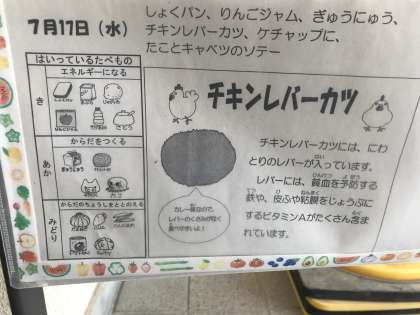 7月17日（水）
しょくパン、りんごジャム、ぎゅうにゅう、
チキンレバーカツ、ケチャップに、
たことキャベツのソテー
はいっているたべもの
エネルギーになる
き
からだをつくる
あか
ぎゅうにゅう
からだのちょうしをととのえる
みどり
さとう
チキンレバーカツ
カレー味なので、
レバーのくさみがなく
食べやすいよ！
チキンレバーカツには、にわ
とりのレバーが入っています。
レバーには、貧血を予防する
鉄や、皮ふや粘膜をじょうぶに
するビタミンAがたくさん含ま
れています。